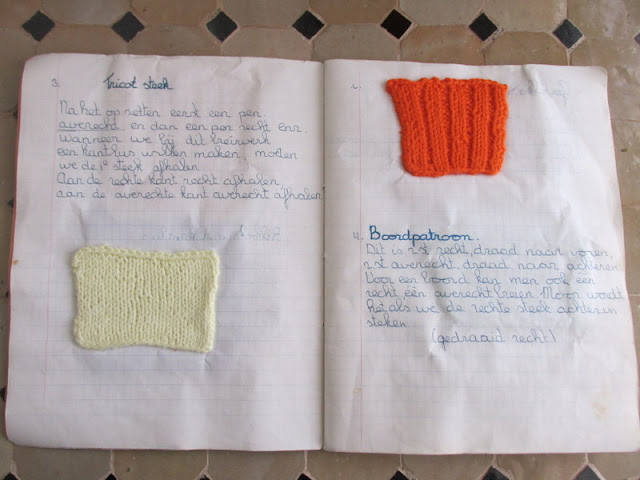 3. Tricot steek
Na het op zetten eerst een pen
averecht en dan een pen recht enz.
wanneer we bij dit breiwerk
een kantlus willen maken, moeten
we de 1e steek afhalen
Aan de rechte kant recht afhalen,
aan de averechte kant averecht afhalen
4. Boordpatroon.
Dit is 2 st recht, draad naar voren,
2 st averecht, draad naar achteren
Voor een boord kan men ook een
recht, één averecht breien. Mooi wordt
het als we de rechte steek achterin
steken
(gedraaid recht)